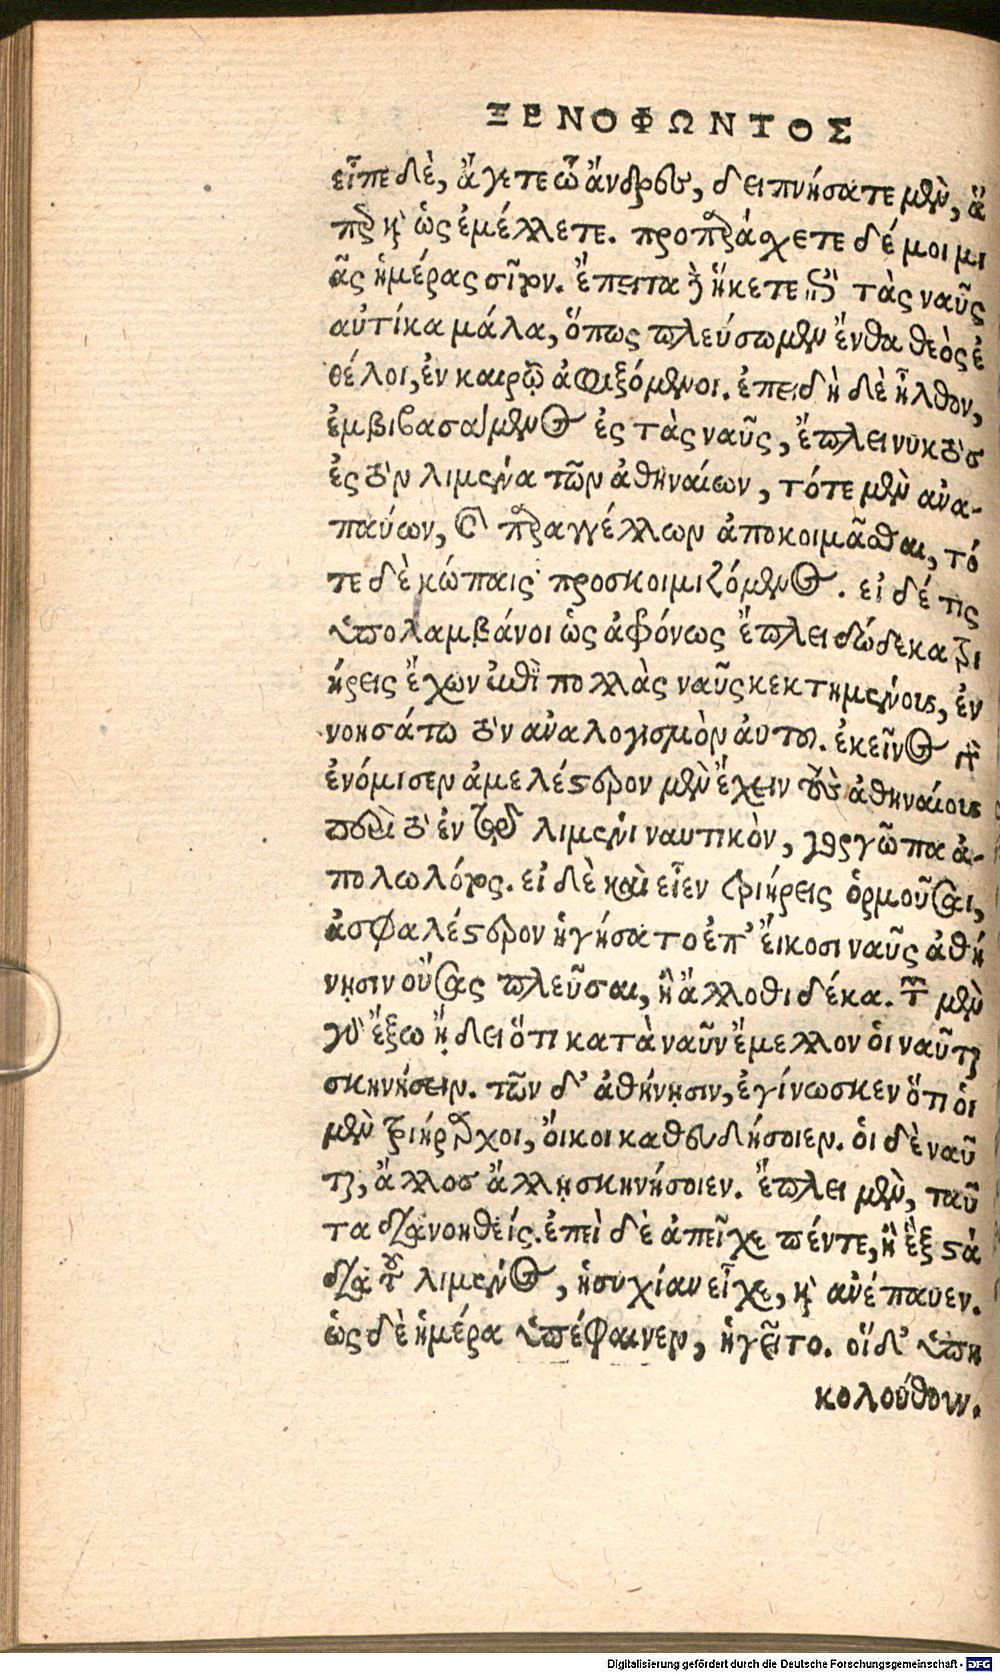 ΞΕΝΟΦΩΝΤΟΣ
εἶπε δὲ, ἄγετε ὦ ἄνδρες, δειπνήσατε μὲν, ἅ
περ κỳ ὡς ἐμέλλετε. προπαράχετε δέ μοι μι
ᾶς ἡμέρας σῖτον. ἔπειτα δὲ ἥκετε ἐπὶ τὰς ναῦς
αὐτίκα μάλα, ὅπως πλεύσωμεν ἔνθα θεὸς ἐ
θέλοι, ἐν καιρῷ ἀφιξόμενοι. ἐπειδὴ δὲ ἦλθον,
ἐμβιβασάμενος ἐς τὰς ναῦς, ἔπλει νυκτὸς
ἐς τὸν λιμένα τῶν ἀθηναίων, τότε μὲν ἀνα-
παύων, καὶ παραγγέλλων ἀποκοιμᾶσθαι, τό
τε δὲ κώπαις προσκοιμιζόμενος. εἰ δέ τις
ὑπολαμβάνοι ὡς ἀφόνως ἔπλει δώδεκα τρι
ήρεις ἔχων ἐπὶ πολλὰς ναῦς κεκτημένους, ἐν
νοησάτω τὸν ἀναλογισμὸν ἀυτοῦ. ἐκεῖνος γὰρ
ἐνόμισεν ἀμελέστερον μὲν ἔχειν τοὺς ἀθηναίους
περὶ τὸ ἐν τῷ λιμένι ναυτικὸν, γοργῶπα ἀ-
πολωλότος. εἰ δὲ καὶ εἶεν τριήρεις ὁρμοῦσαι,
ἀσφαλέστερον ἡγήσατο ἐπ' ἔικοσι ναῦς ἀθή
νησιν οὔσας πλεῦσαι, ἢ ἄλλοθι δέκα. τῶν μὲν
γὰρ ἔξω ᾔδει ὅτι κατὰ ναῦν ἔμελλον ὁι ναῦται
σκηνήσειν. τῶν δ' ἀθήνησιν, ἐγίνωσκεν ὅτι ὁι
μὲν τριήραρχοι, ὄικοι καθευδήσοιεν. ὁι δὲ ναῦ
ται, ἄλλος ἄλλῃ σκηνήσοιεν. ἔπλει μὲν, ταῦ
τα διανοηθείς. ἐπεὶ δὲ ἀπεῖχε πέντε, ἢ ἓξ στά
δια τοῦ λιμένος, ἡσυχίαν εἶχε, κỳ ἀνέπαυεν.
ὡς δὲ ἡμέρα ὑπέφαινεν, ἡγεῖτο. οἵδ' ὑπη
κολούθουν.
Digitalisierung gefördert durch die Deutsche Forschungsgemeinschaft - DFG